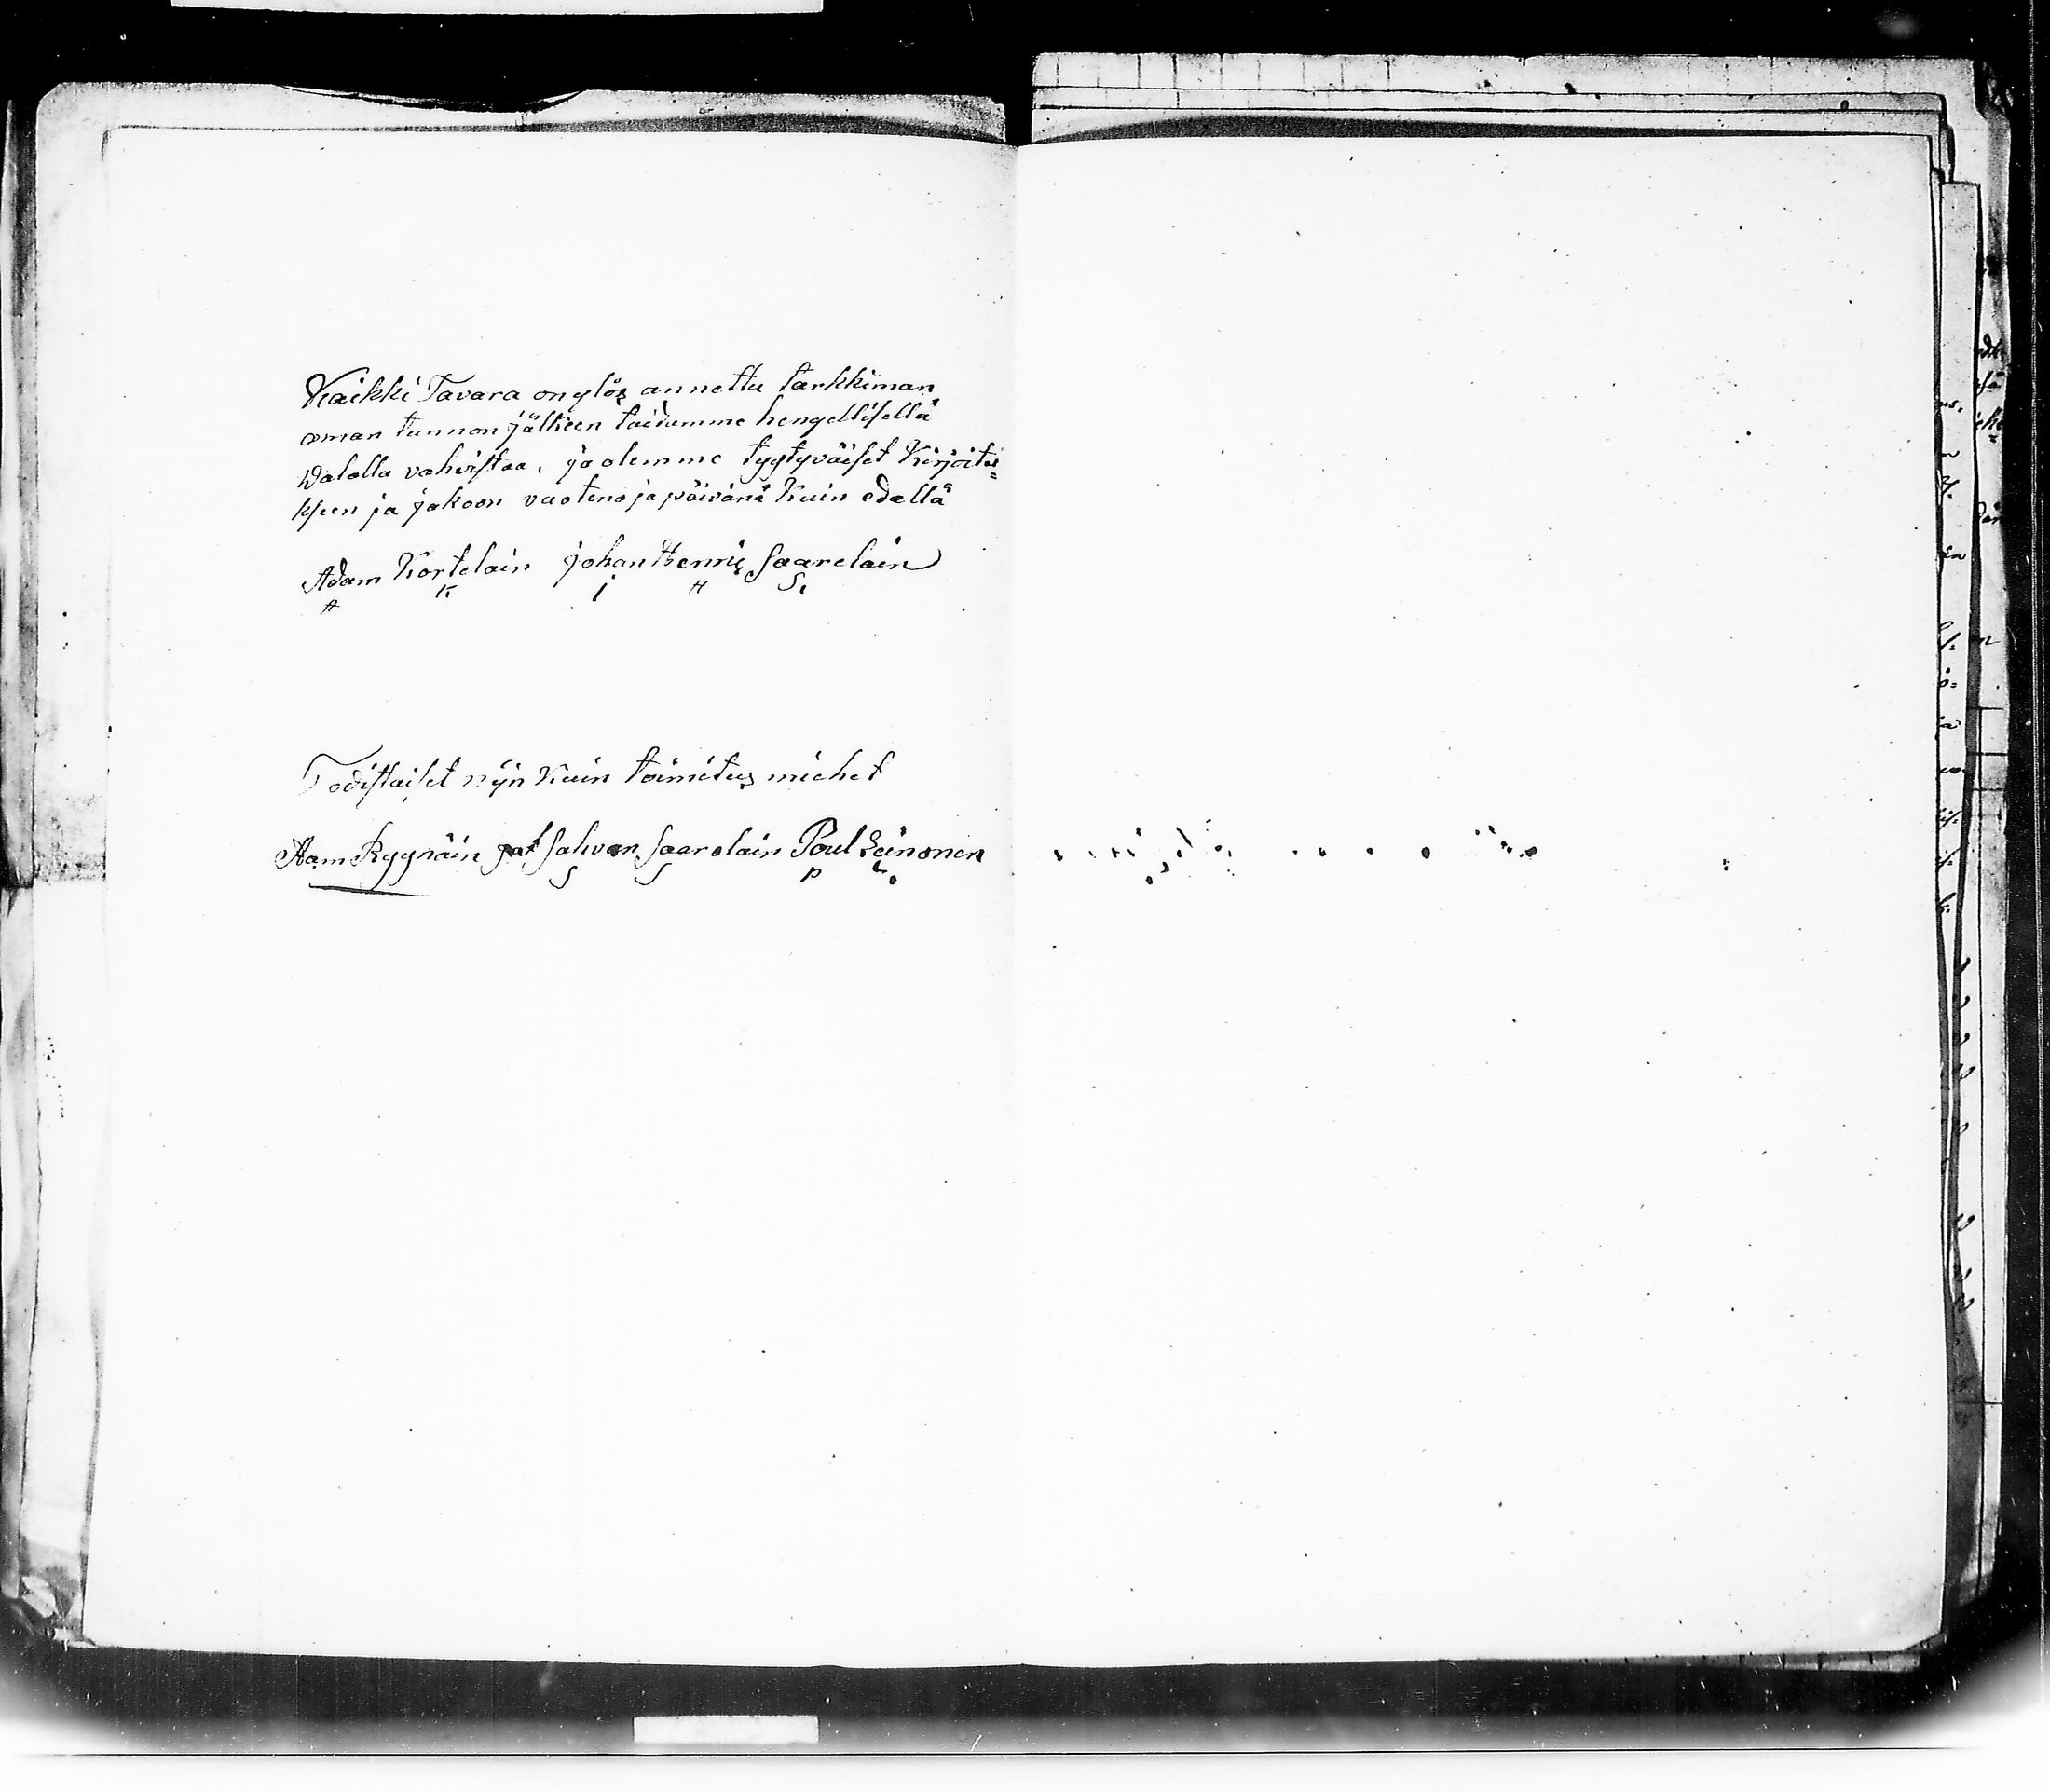 Kaikki Tavara on ylös annettu tarkkiman
oman tunnon jälkeen taidamme hengellisellä
Walalla vahvistaa, ja olemme tyytyväiset Kirjoituk=
kseen ja jakoon vuotena ja päivänä Kuin edellä
Adam Kortelain Johan Henric Saarelain
A K J H S.
Todistaiset nijn Kuin toimitus miehet
Aam Ryynäin Salvon Saarelain Poul Leinonen
S S P L